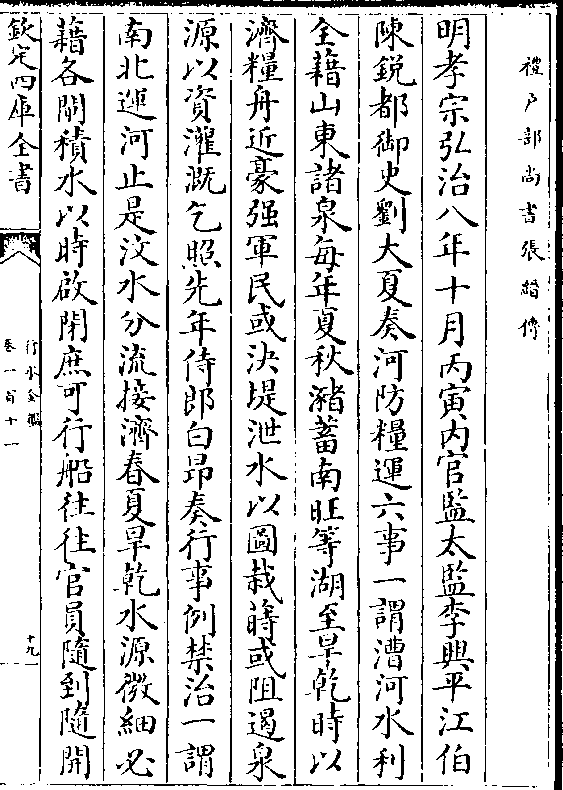 禮戶部尚書張縉傳
明孝宗弘治八年十月丙寅内官監太監李興平江伯
陳鋭都御史劉大夏奏河防糧運六事一謂漕河水利
全藉山東諸泉每年夏秋瀦蓄南旺等湖至旱乾時以
濟糧舟近豪强軍民或決堤泄水以圖栽蒔或阻遏泉
源以資灌溉乞照先年侍郎白昂奏行事例禁治一謂
南北運河止是汶水分流接濟春夏旱乾水源微細必
藉各閘積水以時啟閉庶可行船往往官員隨到隨開
欽定四庫全書
行水金鑑
卷一百十一
十九